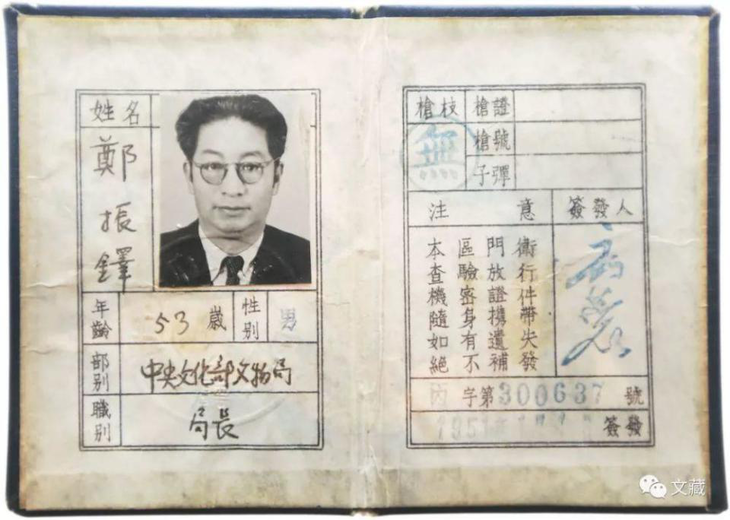 姓名
鄭振鐸
年齡
53歲
性別
男
部別
中央文化部文物局
職別
局長
槍枝
槍證
槍號
子彈
無
注意
簽發人
衛行件帶失發
門放證携遺補
區驗密身有不
本查機隨如絕
丙字第300637號
簽發
文藏